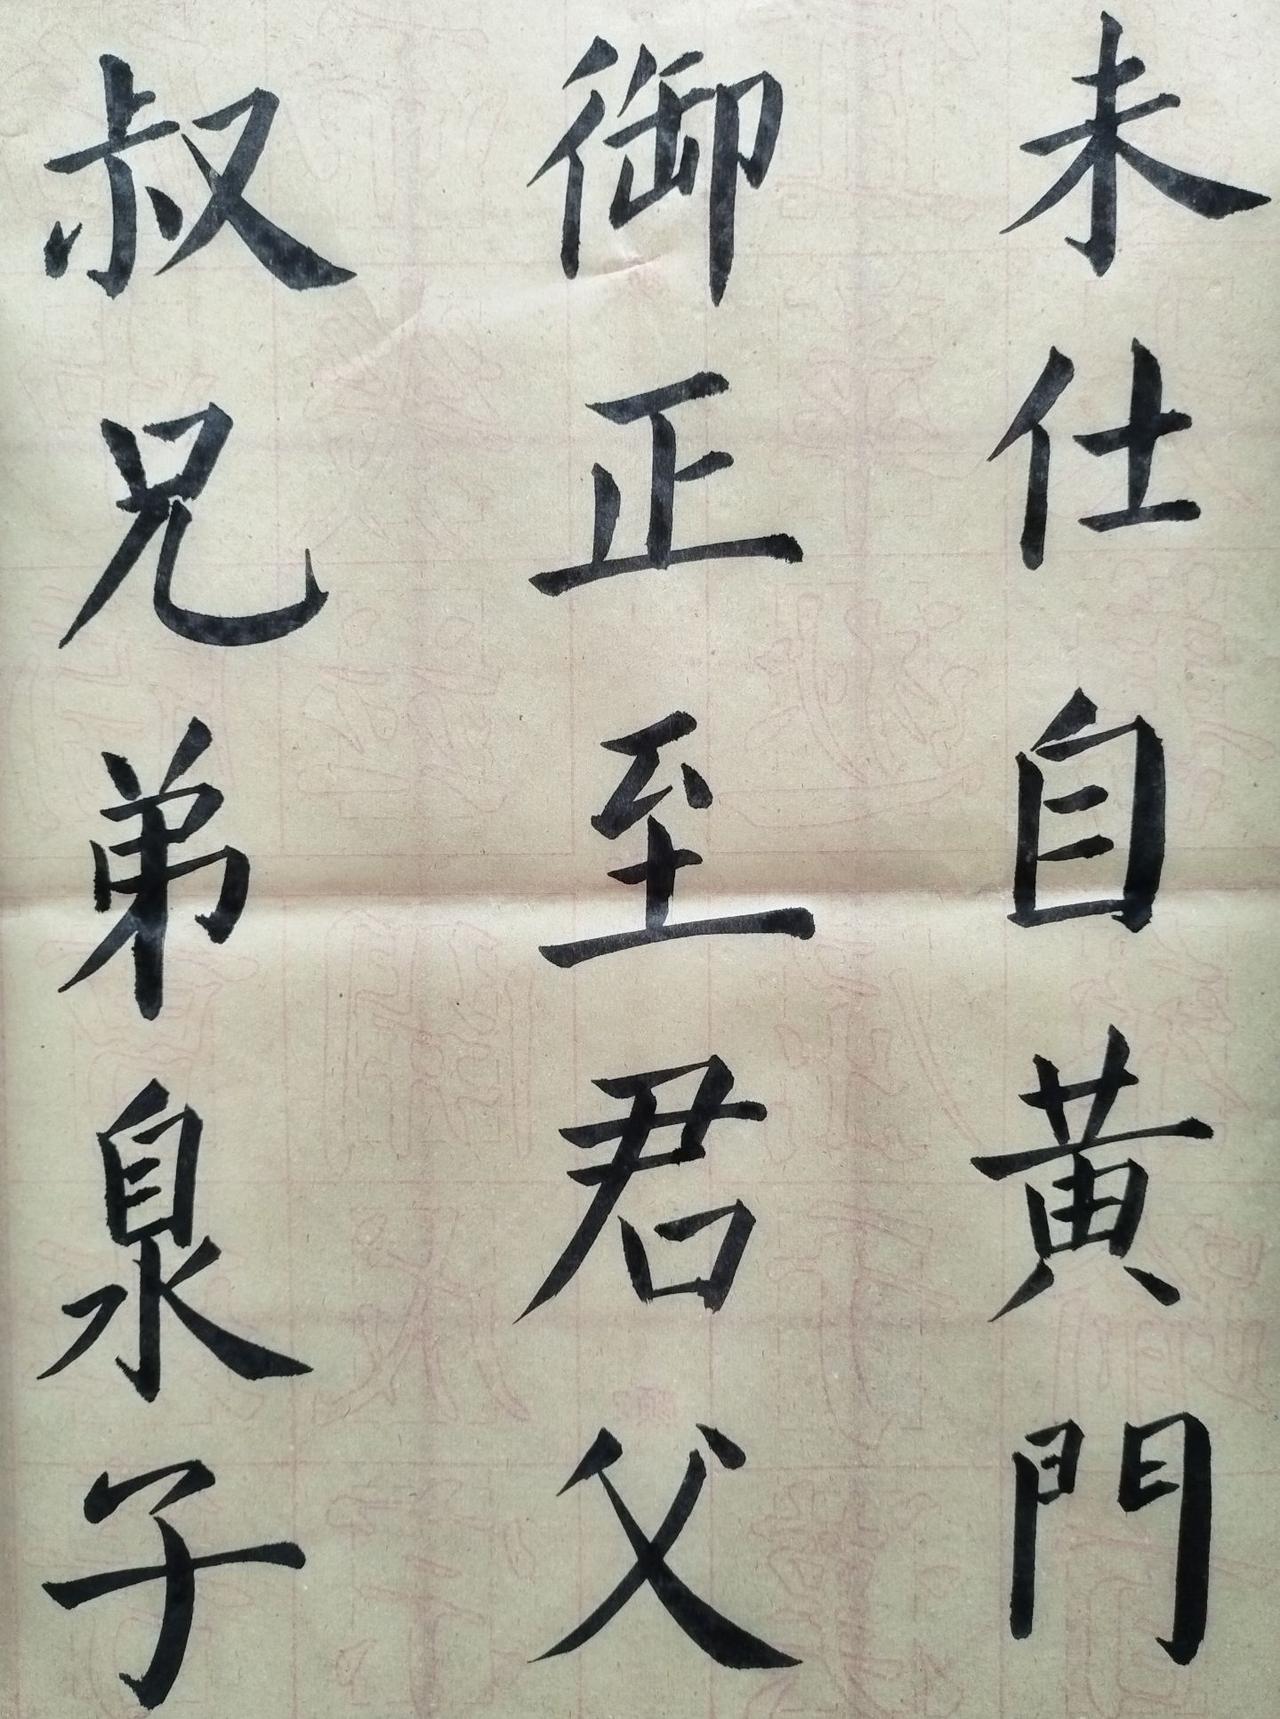 未仕自黄門
御正至君父
叔兄弟泉子